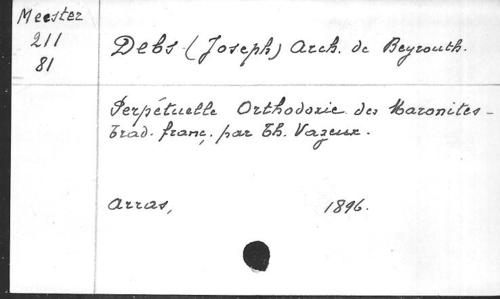 Meester
211
81
Debs (Joseph) Arch. de Beyrouth.
Perpétuelle Orthodoxie des Maronites -
trad. franç. par Th. Vazeux.
Arras, 1896.